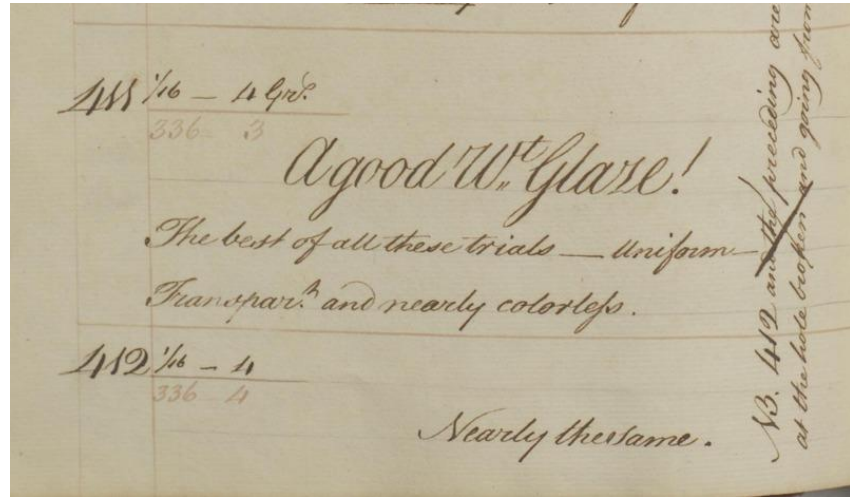 411 1/16 — 4 Grs.
336 – 3
A good Wt. Glaze!
The best of all these trials — Uniform —
Transpart. and nearly colorless.
412 1/16 – 4
336 4
Nearly the same.
NB. 412 and the preceding are
at the hole broken and going from